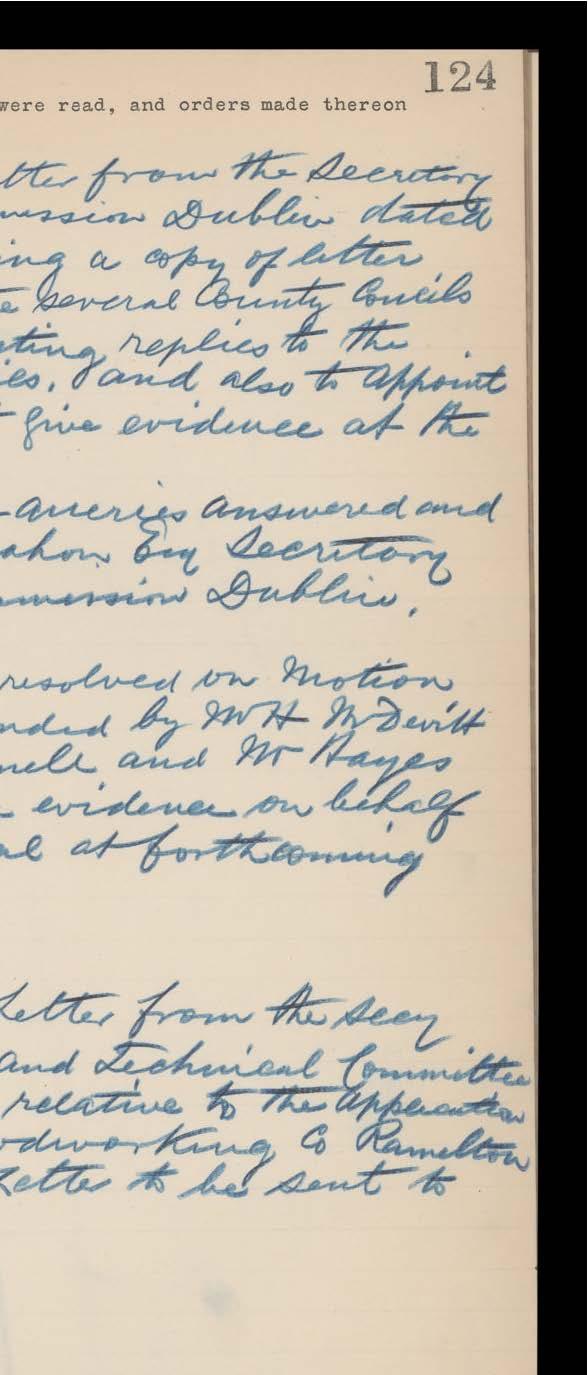 124
were read, and orders made thereon
tter from the Secretary
mission Dublin dated
ing a copy of letter
e several County Concils
sting replies to the
ies, and also to appoint
give evidence at the
Queries answered and
ahon Esq Secretary
mmission Dublin.
resolved on Motion
nded by Mr H McDevitt
nell and Mr Hayes
evidence on behalf
al at forthcoming
Letter from the Secy
and Technical Committee
relative to the Application
odworking Co Ramelton
Letter to be sent to